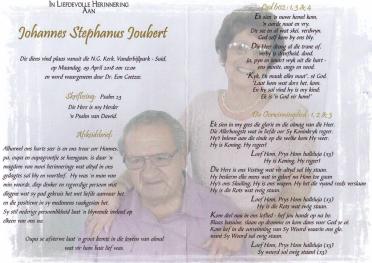 IN LIEFDEVOLLE HERINNERING
AAN
Johannes Stephanus Joubert
Die diens vind plaas vanuit die N.G. Kerk, Vanderbijlpark - Suid,
op Maandag, 2018 om 12:00
en word waargeneem deur Dr. Eim Coetzee.
Skriflesing: Psalm 23
Die Here is my Herder
'n Psalm van Dawid.
Afskeidsbrief:
Alhoewel ons harte seer is en ons treur oor Hannes,
pa, oupa en oupagrootjie se heengaan, is daar 'n
magdom van mooi herinneringe wat altyd in ons
gedagtes sal bly en voortleef. Hy was 'n man van
min woorde, diep denker en regverdige persoon met
diepte wat sy pad gekruis het met liefde aanvaar het
en die positiewe in sy medemens raakgesien het.
Sy stil nederige persoonlikheid laat 'n blywende invloed op
elkeen van ons na.
Oupa se afsterwe laat 'n groot leemte in die lewens van almal
wat vir hom baie lief was.
Lied 602: 1, 3 & 4
Ek sien 'n nuwe hemel kom,
'n aarde nuut en vry.
Die see en al wat skei, verdwyn,
God self kom by ons bly.
Die Heer droog al die trane af,
verby is droefheid, dood.
Ja, pyn en smart wyk uit die hart -
ons nuwe, angs en nood.
"Kyk, Ek maak alles nuut", sê God.
"Laat hom wat dors het, kom.
En hy sal vind by is my kind:
Ek is 'n God vir hom!"
Die Genesisinglied: 1, 2 & 3
Ek sien in my gees die glorie en die almag van die Heer.
Die Allerhoogste wat in liefde oor sy Koninkryk regeer.
Hy't belowe aan die einde op die wolke kom Hy weer.
Hy is Koning, Hy regeer!
Loof Hom, Prys Hom halleluja (x3)
Hy is Koning, Hy regeer!
Die Heer is ons Vesting wat vir altyd sal bly staan.
Hy beskerm die mens wat te gelowe na Hom toe sal gaan.
Hy's ons Skuiling, Hy is ons wapen. Hy het die vyand reeds verslaan
Hy is die Rots wat ewig staan.
Loof Hom, Prys Hom halleluja (x3)
Hy is die Rots wat ewig staan.
Kom dan nou in ons loflied - hef jou hande op na bo.
Blaas basuine, slaan op dromme en kom dans voor God se
Kan lief in die uitvoering van Sy Woord waarin ons glo,
want Sy Woord sal ewig staan.
Loof Hom, Prys Hom halleluja (x3)
want Sy Woord sal ewig staan.